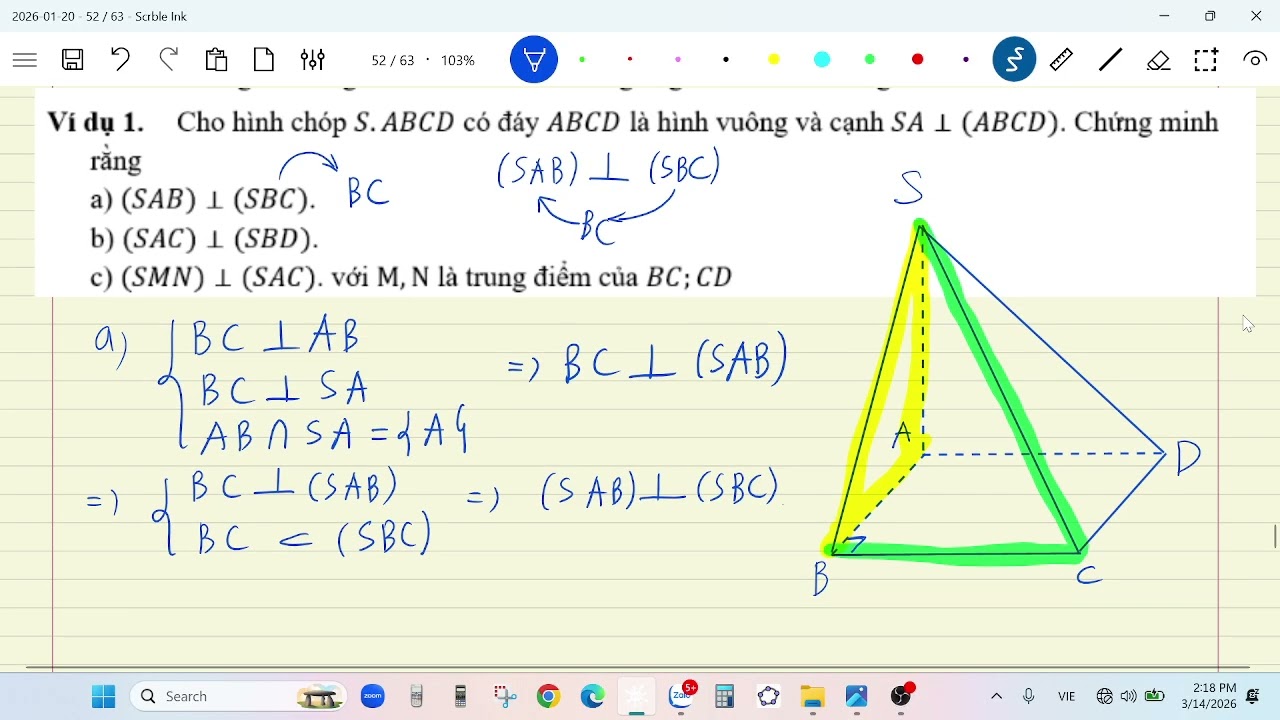 2026-01-20 - 52 / 63 - Scrble Ink
52 / 63 · 103%
Ví dụ 1. Cho hình chóp S.ABCD có đáy ABCD là hình vuông và cạnh SA ⊥ (ABCD). Chứng minh
rằng
a) (SAB) ⊥ (SBC). BC
(SAB) ⊥ (SBC)
BC
b) (SAC) ⊥ (SBD).
c) (SMN) ⊥ (SAC). với M, N là trung điểm của BC; CD
S
A
D
B
C
a) { BC ⊥ AB
BC ⊥ SA
AB ∩ SA = {A}
=> BC ⊥ (SAB)
=> { BC ⊥ (SAB)
BC ⊂ (SBC)
=> (SAB) ⊥ (SBC)
Search
zoom
Zalo
5+
VIE
2:18 PM
3/14/2026